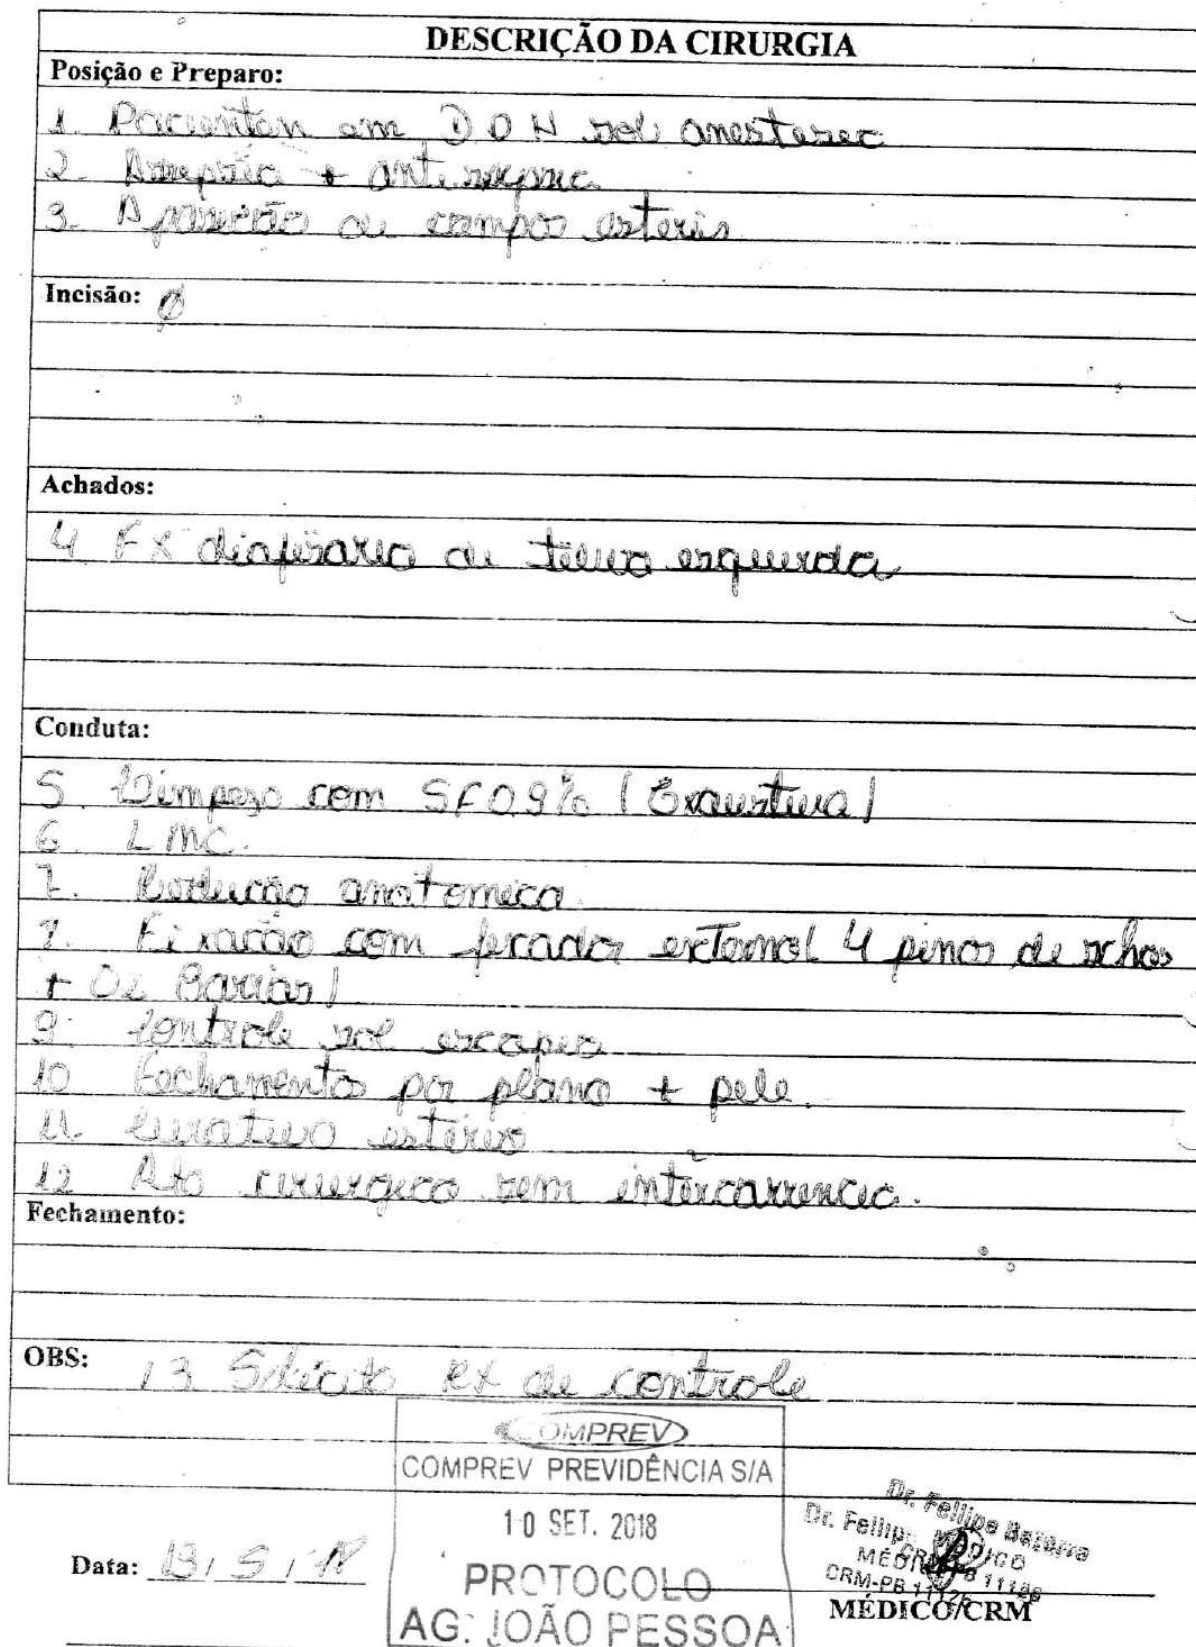 DESCRIÇÃO DA CIRURGIA
Posição e Preparo:
1. em DDH sob anestesec
2. Assepsia + antissepsia
3. Aposição de campos estereis
Incisão: Ø
Achados:
4 FX diafisaria de tibia esquerda
Conduta:
5. Limpeza com SF0.9% (Exaustiva)
6. LMC.
7. Redução anatomica.
Fixação com fixador externo( 4 pinos de schas
+ 02 Barras)
9. Controle sob escopia
10 Fechamento por plano + pele.
11. Curativo esteril
12 Ato cirurgico sem intercorrencia.
Fechamento:
OBS: 13 Solicito RX de controle
COMPREV
COMPREV PREVIDÊNCIA S/A
10 SET. 2018
PROTOCOLO
AG. JOÃO PESSOA
Data: 13/5/18
Dr. Fellipe Bezerra
MÉDICO
CRM-PB
MÉDICO/CRM